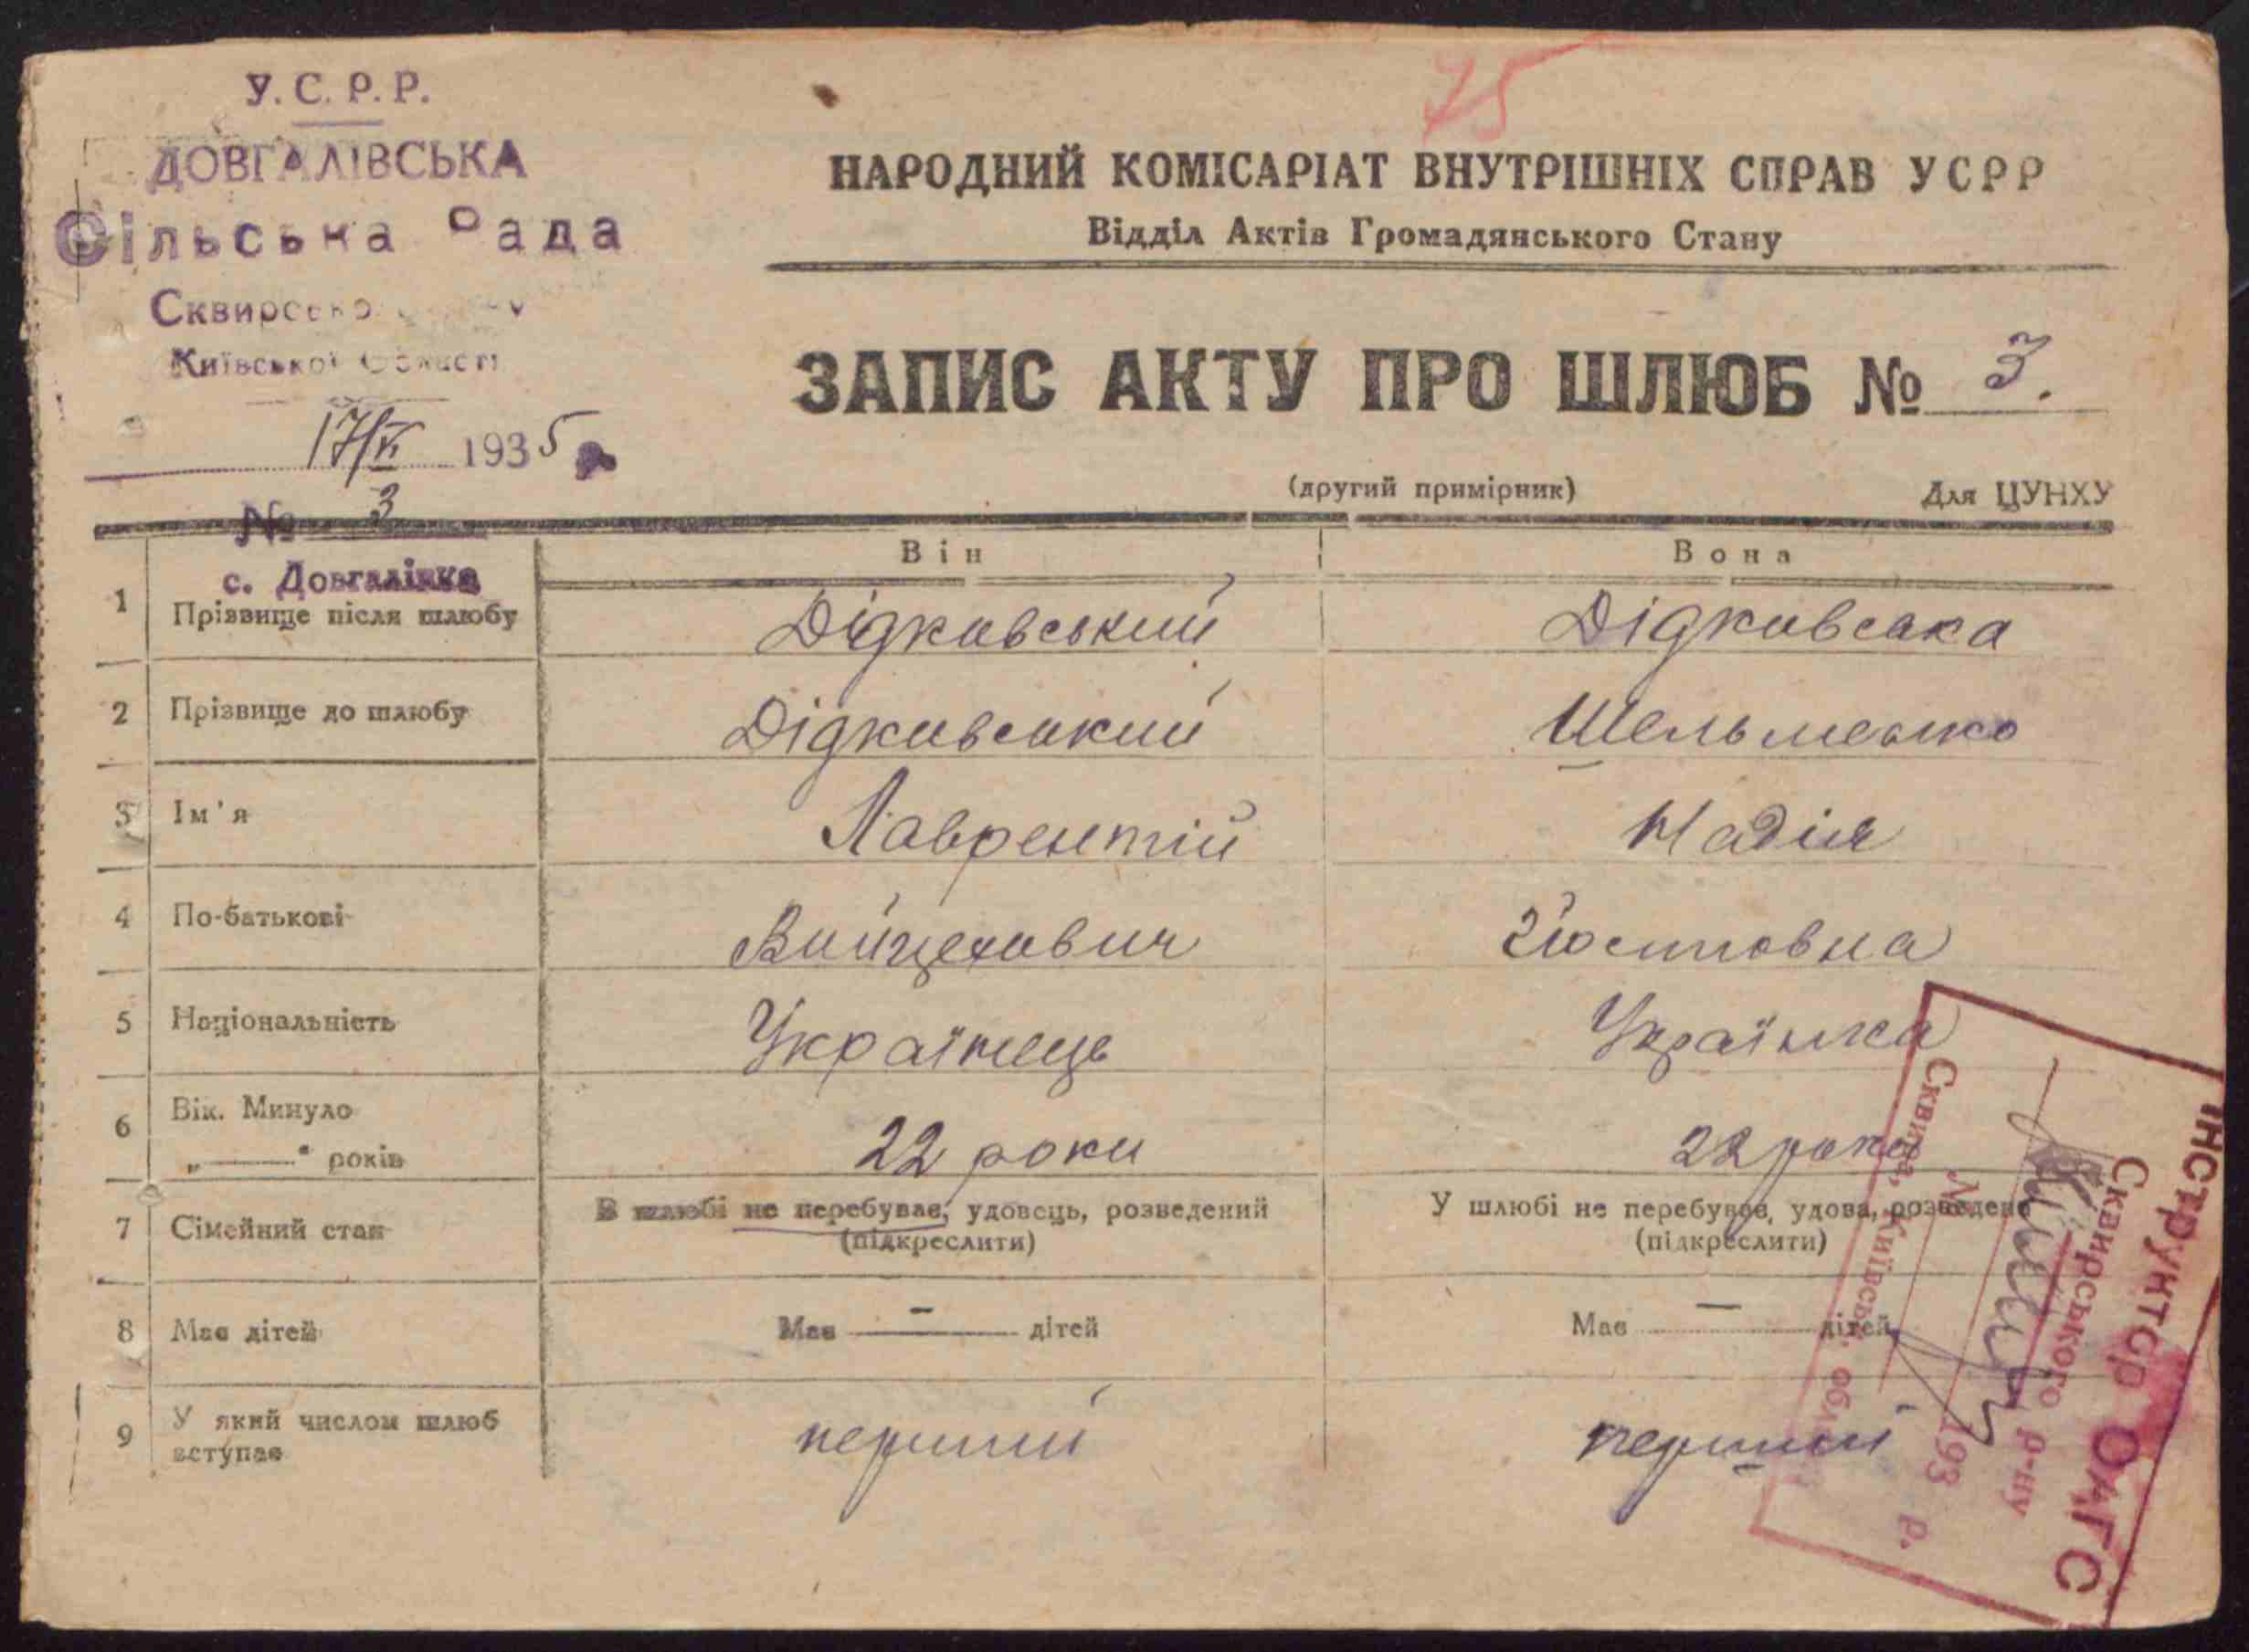 75
У.С.Р.Р.
ДОВГАЛІВСЬКА
Сільська Рада
Сквирсько
Київської Області
17/V 1935
№ 3
с. Довгалівка
НАРОДНИЙ КОМІСАРІАТ ВНУТРІШНІХ СПРАВ УСРР
Відділ Актів Громадянського Стану
ЗАПИС АКТУ ПРО ШЛЮБ № 3.
(другий примірник) Для ЦУНХУ
Він Вона
1 Прізвище після шлюбу Дідківський Дідківська
2 Прізвище до шлюбу Дідківський Шельменко
3 Ім'я Лаврентій Надія
4 По-батькові Войцехович Йосиповна
5 Національність Українець Українка
6 Вік. Минуло
„ “ років 22 роки 22 роки
7 Сімейний стан В шлюбі не перебував, удовець, розведений У шлюбі не перебував, удова, розведена
(підкреслити) (підкреслити)
8 Має дітей Має — дітей Має — дітей
9 У який числом шлюб
вступає перший перший
Інструктор ОАГС
Сквирського р-ну
№ 193 р.
Сквира, Київськ. обл.